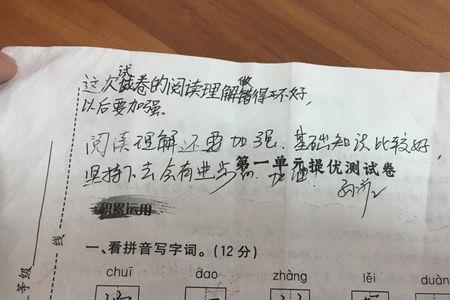 这次试卷的阅读理解做得不好，
以后要加强。
阅读理解还要加强，基础知识比较好，
坚持下去会有进步 加油
第一单元提优测试卷
积累运用
一、看拼音写字词。(12分)
chuī zhàng lěi duàn
线
等级